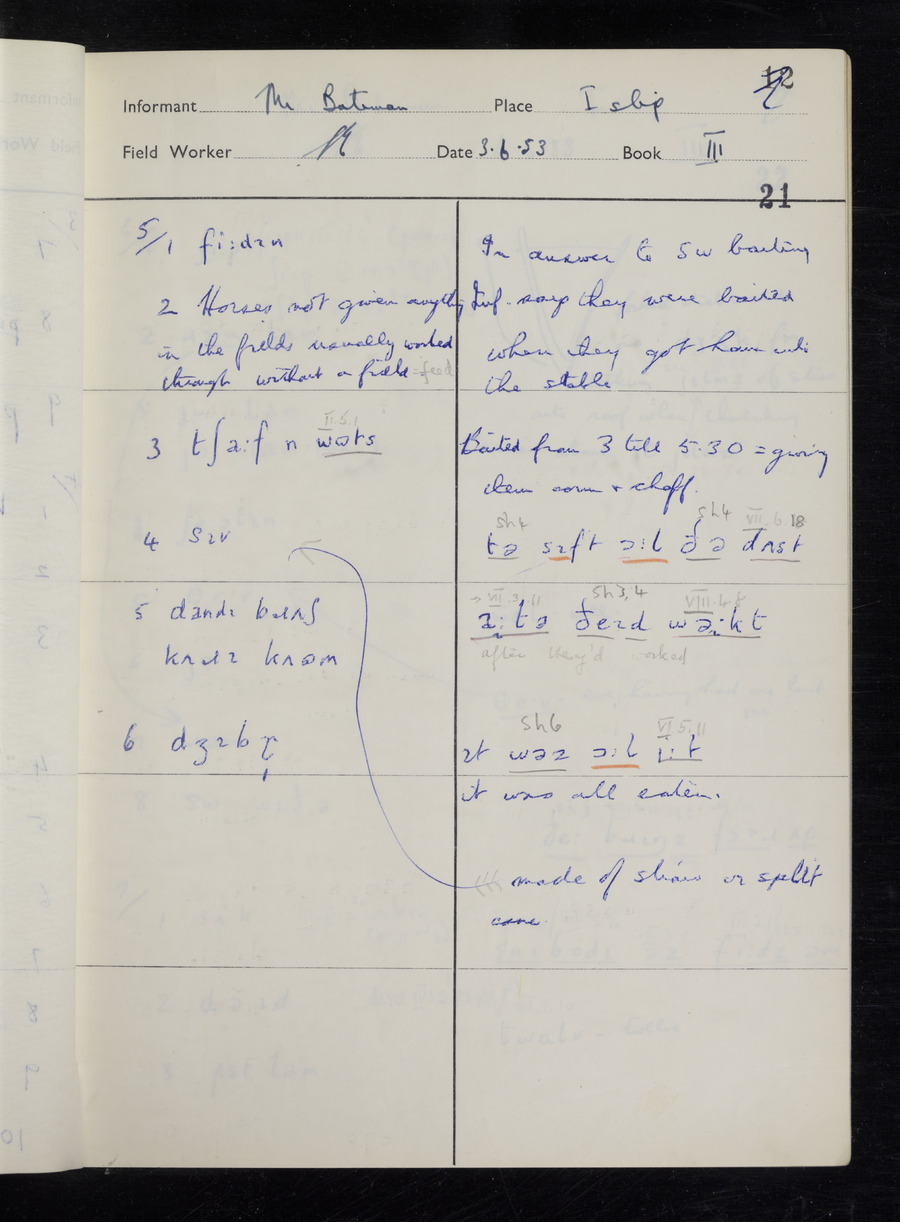 12
Informant Mr Bateman Place Islip
Field Worker Date 3.6.53 Book III
21
5/1 fiːdɪn
2 Horses not given anything
in the fields usually worked
through without a field = feed
II.5.1
3 tʃaːf n wəts
4 sɪv
5 dandɪ bɹʌʃ
6 dʒɪb
In answer to sw baiting
Inf. says they were baited
when they got home into
the stable
Baited from 3 till 5.30 = giving
them corn + chaff.
sh4 sh4 VII.6.18
tə sɪft ɔːl ðə dʌst
→ VII.3.11 sh3,4 VIII.4.8
aːtə ðeɪd wəːkt
after they'd worked
sh6 VI.5.11
ɪt wəz ɔːl iːt
it was all eaten.
made of straw or split
cane.